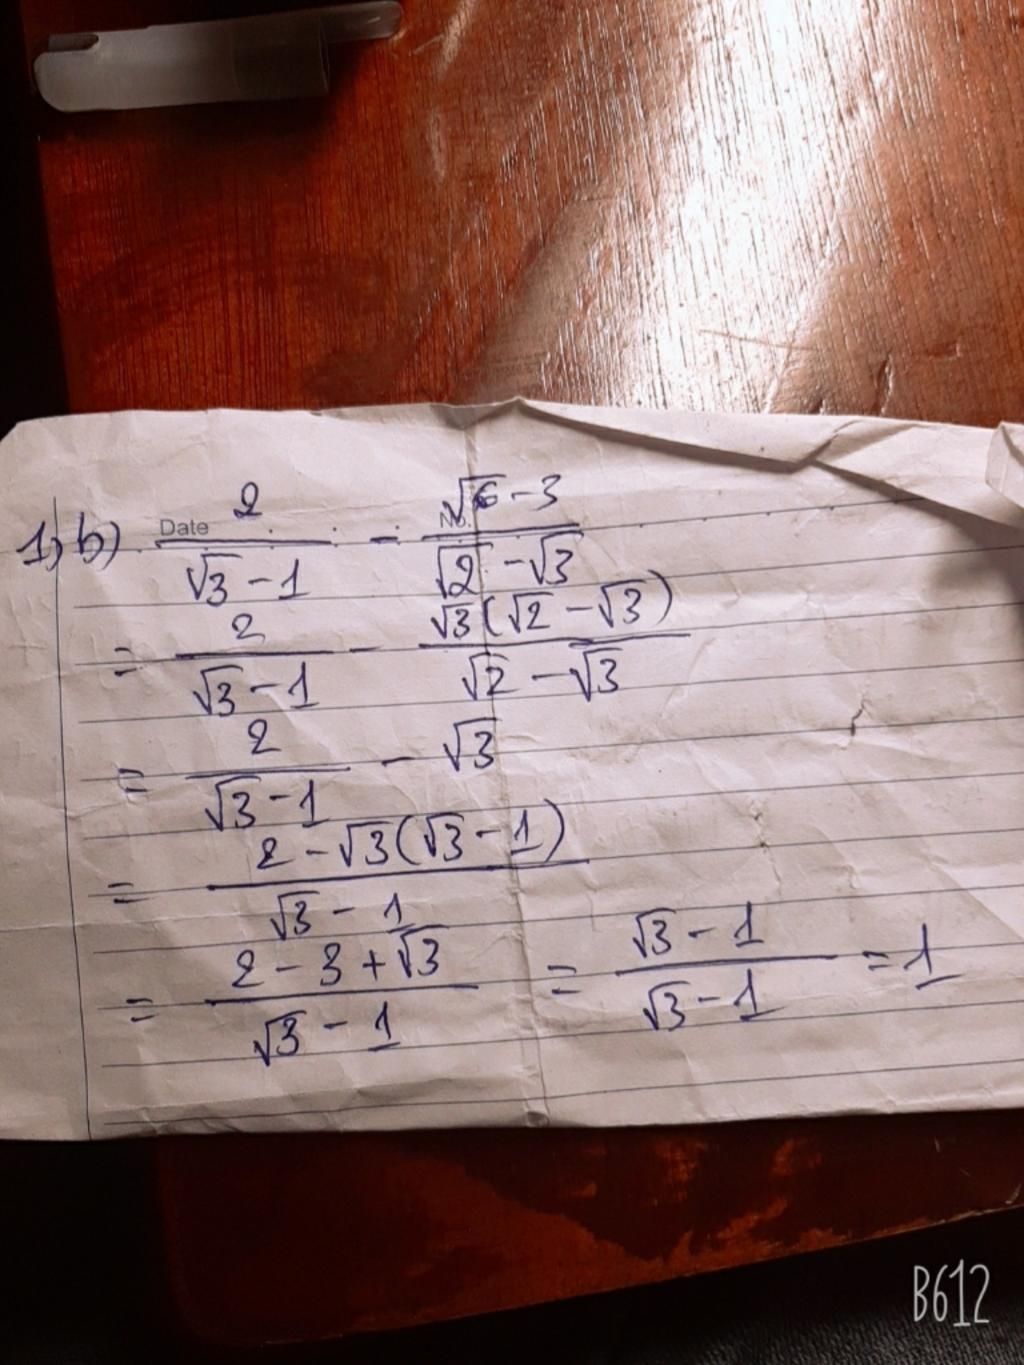 Date No.
1, b) 2/(√3 - 1) - (√6 - 3)/(√2 - √3)
= 2/(√3 - 1) - √3(√2 - √3)/(√2 - √3)
= 2/(√3 - 1) - √3
= (2 - √3(√3 - 1))/(√3 - 1)
= (2 - 3 + √3)/(√3 - 1) = (√3 - 1)/(√3 - 1) = 1
B612